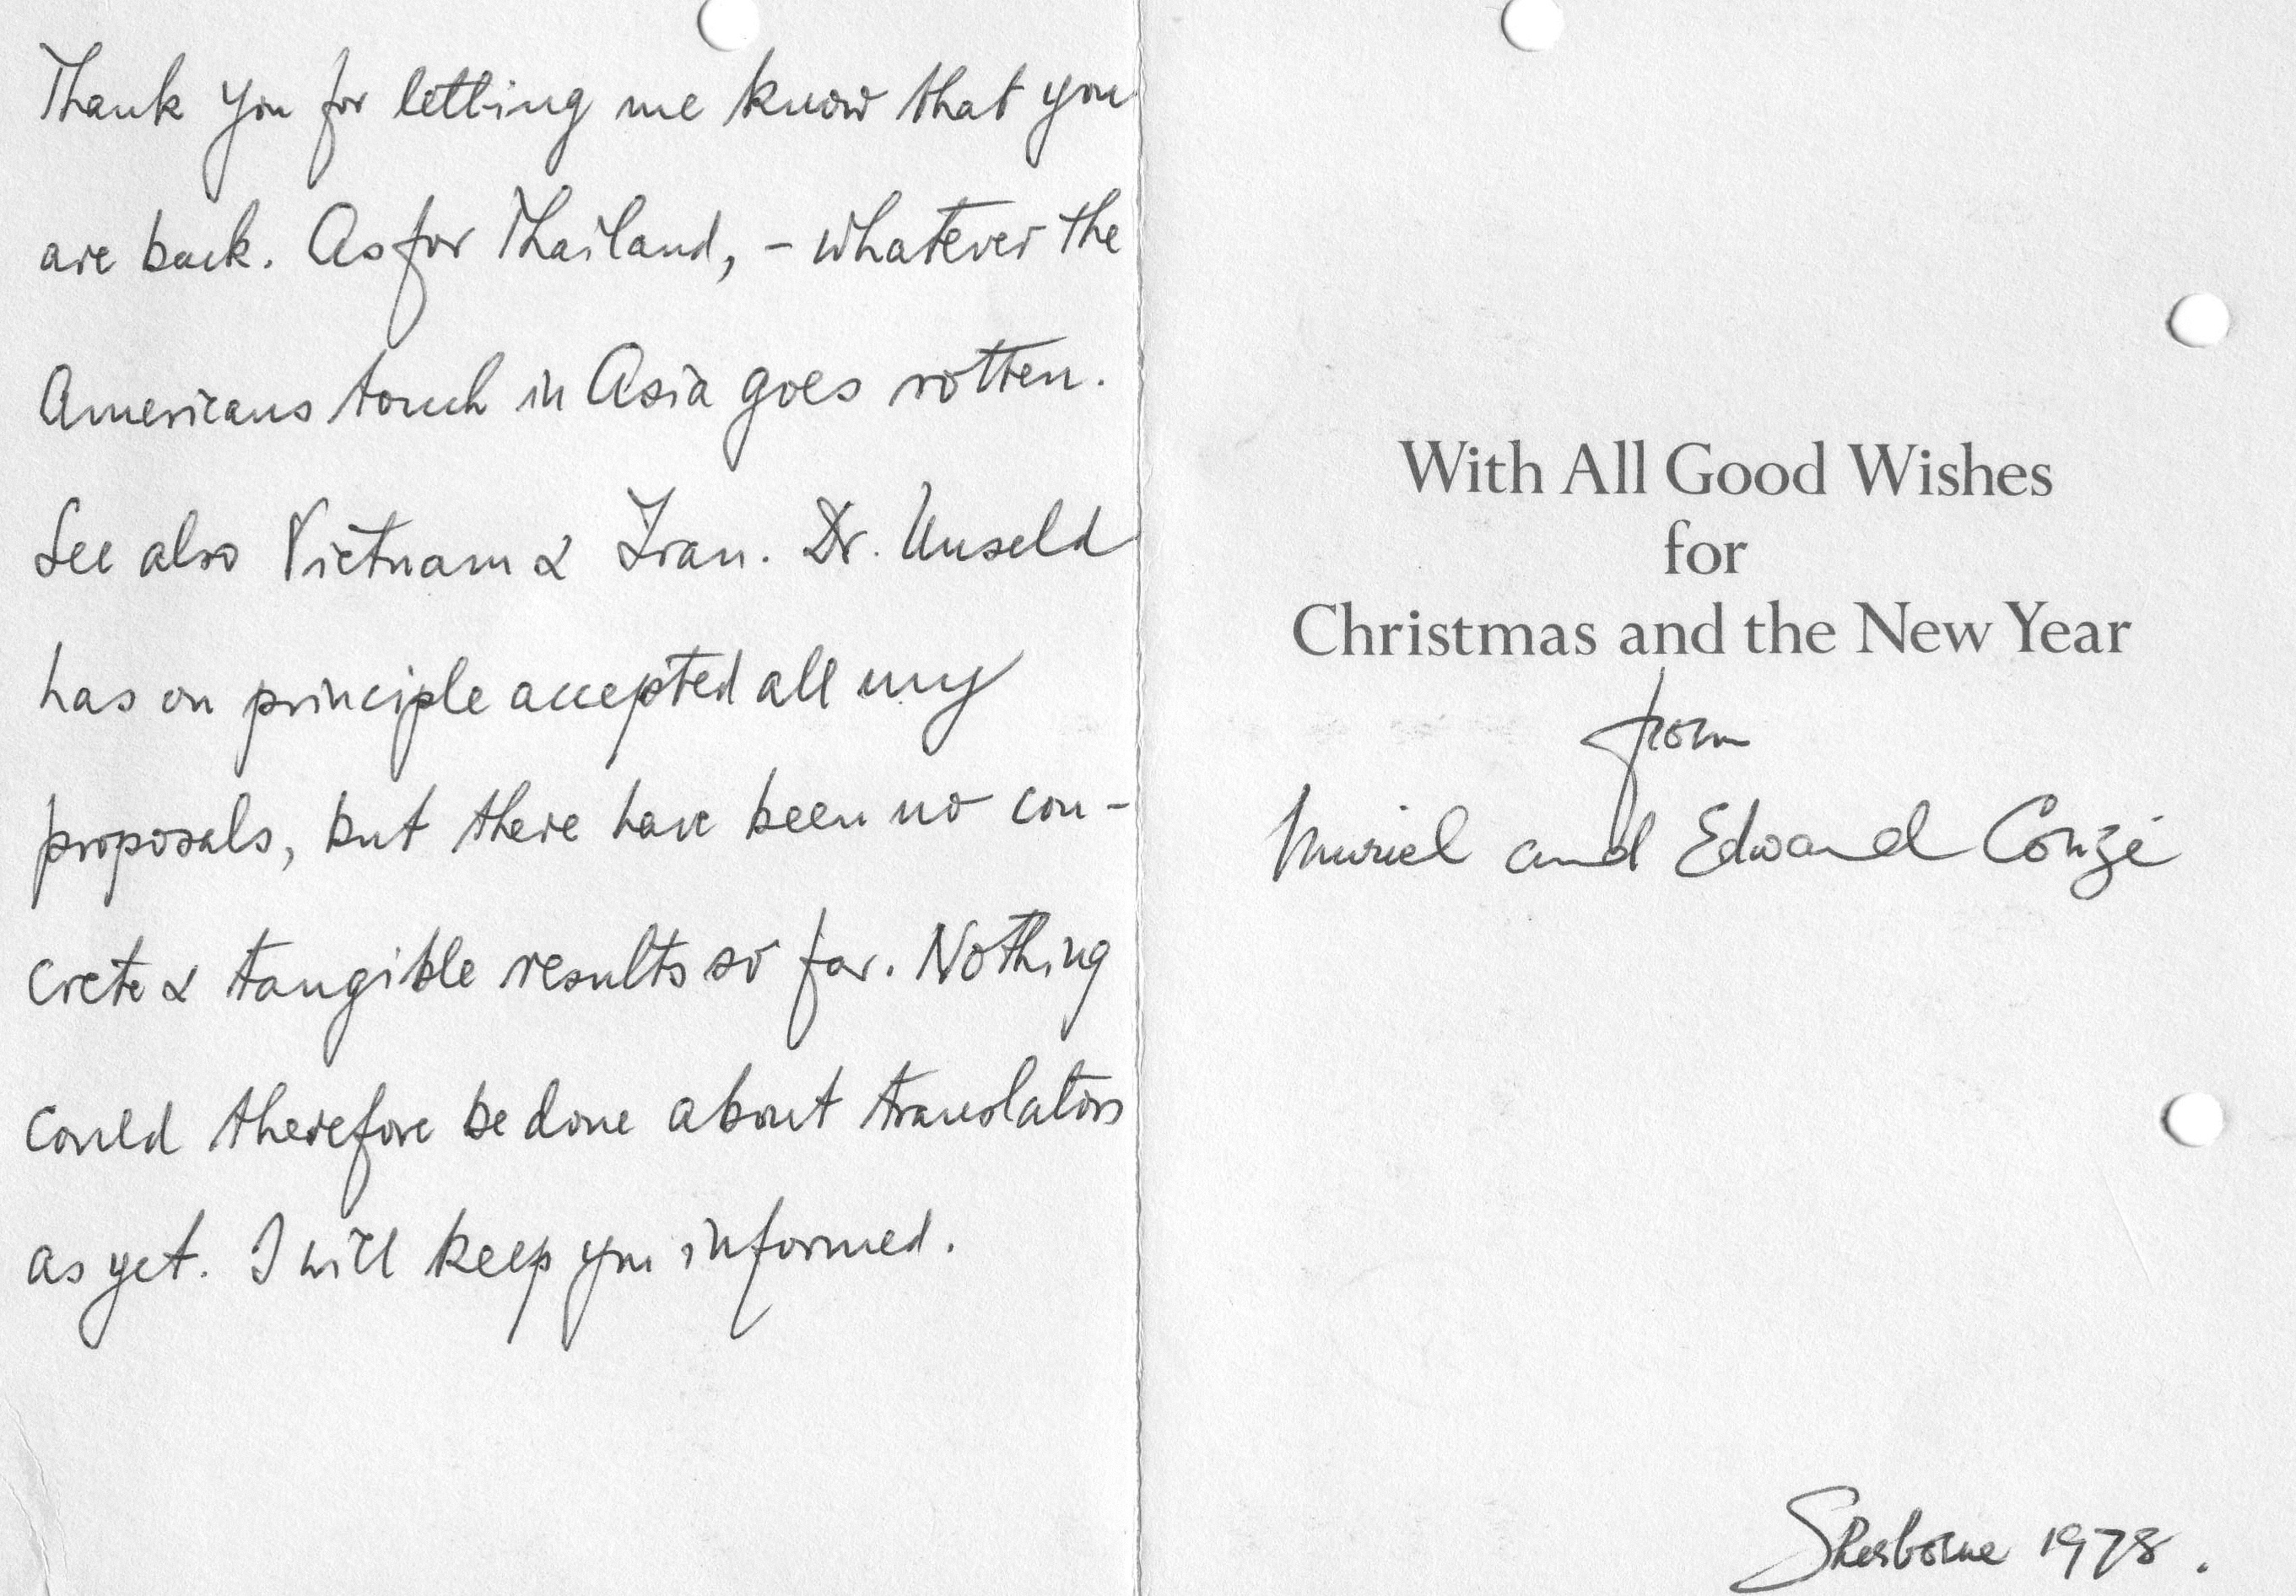 Thank you for letting me know that you
are back. As for Thailand, - whatever the
Americans touch in Asia goes rotten.
See also Vietnam & Iran. Dr. Unseld
has on principle accepted all my
proposals, but there have been no con-
crete & tangible results so far. Nothing
could therefore be done about translators
as yet. I will keep you informed.
With All Good Wishes
for
Christmas and the New Year
from
Muriel and Edward Conze
Sherborne 1978.